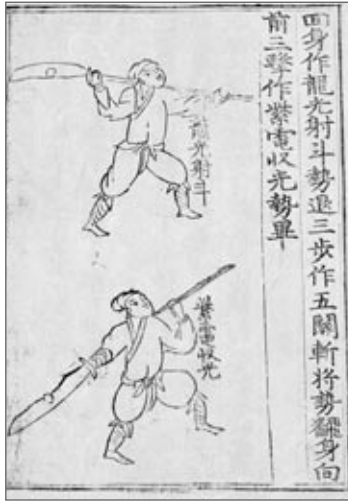 回身作龍光射斗勢退三步作五關斬將勢飜身向
前三擊作紫電收光勢畢
龍光射斗
紫電收光